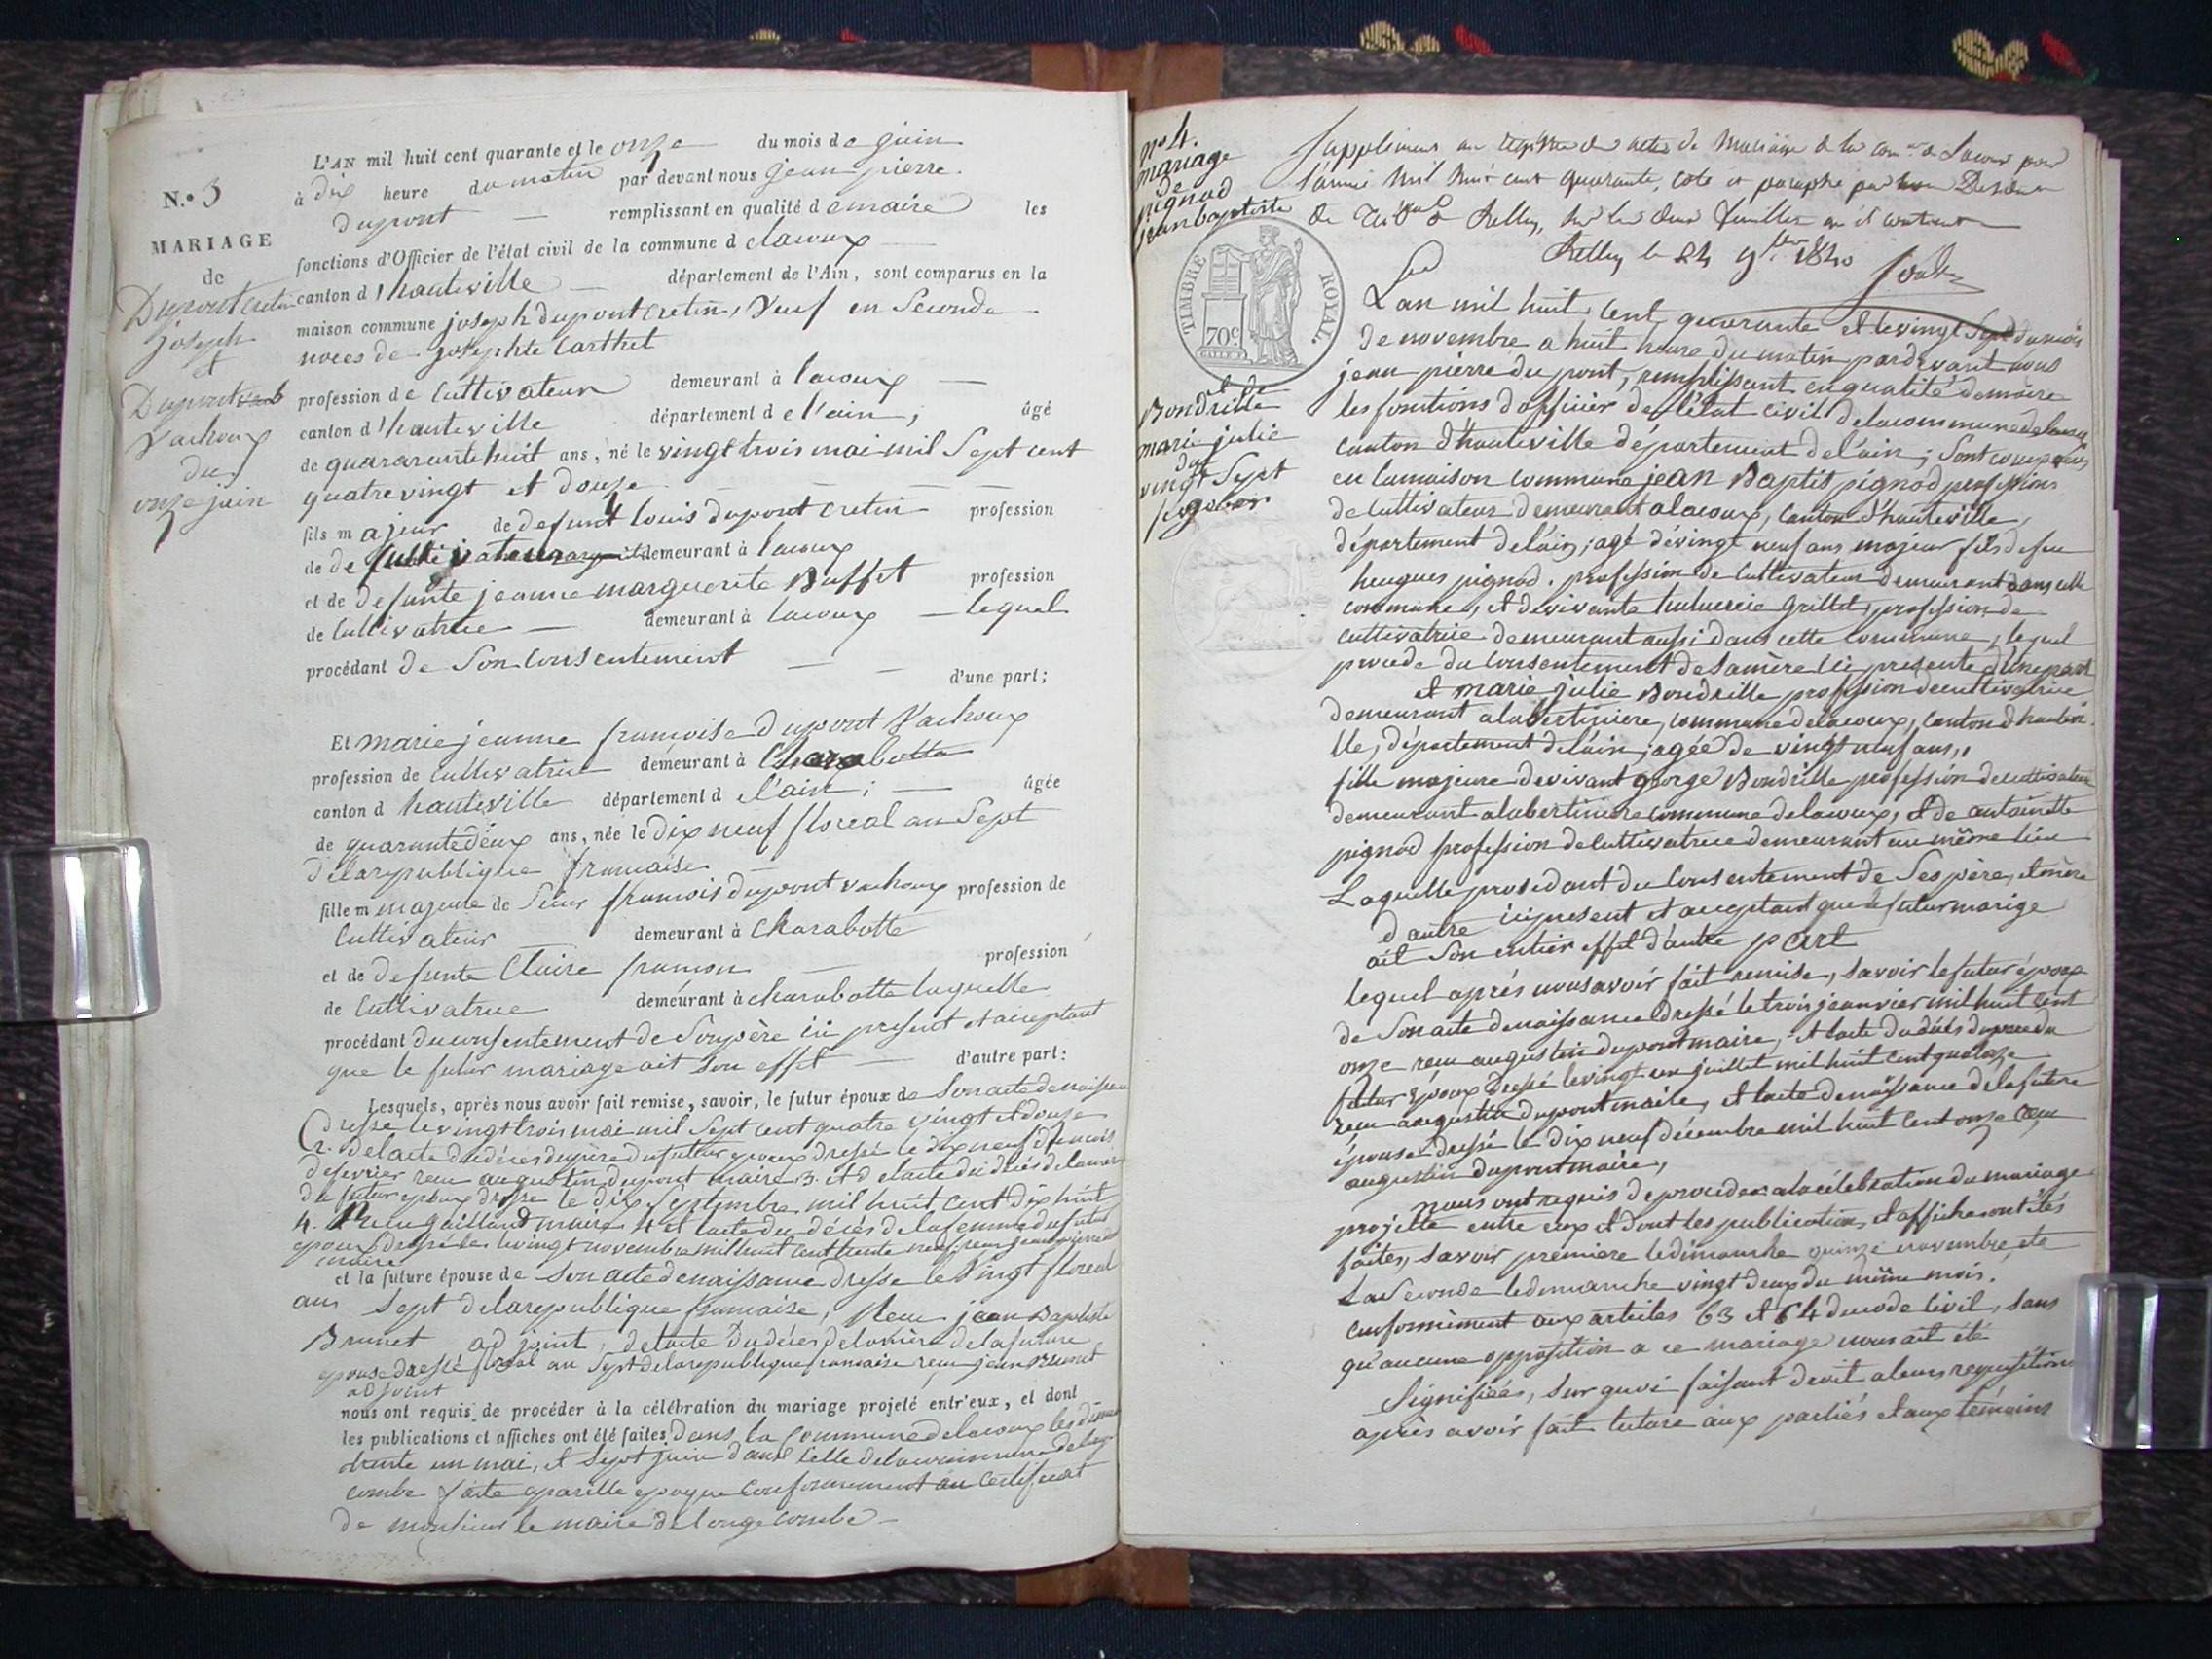 N.° 3
MARIAGE
de
Dupont cretin
joseph
et
Dupont
Vachoux
du
onze juin
L'AN mil huit cent quarante et le onze du mois de juin
à dix heure du matin par devant nous jean pierre
dupont remplissant en qualité de maire les
fonctions d'Officier de l'état civil de la commune d elacoux
canton d'hauteville département de l'Ain, sont comparus en la
maison commune joseph dupont cretin, Veuf en Seconde
noces de josephte Carthet
profession de Cultivateur demeurant à lacoux
canton d'hauteville département de l'ain, âgé
de quararante huit ans, né le vingt trois mai mil Sept cent
quatre vingt et douze
fils majeur de defunt louis dupont cretin profession
de de Cultivateur demeurant à lacoux
et de defunte jeanne marguerite Buffet profession
de Cultivatrice demeurant à lacoux lequel
procédant de Son Consentement
d'une part;
Et marie jeanne françoise dupont Vachoux
profession de Cultivatrice demeurant à Charabotte
canton d hauteville département d el'ain; âgée
de quarante deux ans, née le dix neuf floreal an Sept
de larepublique française
fille m majeure de Sieur françois dupont vachoux profession de
Cultivateur demeurant à Charabotte
et de defunte Claire françon profession
de Cultivatrice demeurant à charabotte laquelle
procédant du consentement de Son père ici present et acceptant
que le futur mariage ait Son effet d'autre part:
Lesquels, après nous avoir fait remise, savoir, le futur époux de Son acte de naissance
dresse le vingt trois mai mil Sept cent quatre vingt et douze
2. de lacte du déces du père du futur epoux dressé le dix neuf du mois
de fevrier recu augustin dupont maire 3. et de lacte du déces de la mere
du futur epoux dresse le dix Septembre mil huit cent dix huit
4. Recu gailland maire et lacte du déces de la femme du futur
epoux dressé le vingt novembre mil huit cent trente neuf recu jean pierre
maire
et la future épouse de Son acte de naissance dresse le Vingt floreal
an Sept de larepublique francaise, Recu jean Baptiste
Brunet adjoint, de lacte du déces de la mère de la future
epouse dressé floreal an Sept de larepublique francaise recu jean Brunet
adjoint
nous ont requis de procéder à la célébration du mariage projeté entr'eux, et dont
les publications et affiches ont été faites dans la Commune de lacoux les
trente un mai, et Sept juin dans Celle de la commune de longe
combe faite apareille epoque Conformement au Certificat
de monsieur le maire de longe combe
n° 4.
mariage
de
pignod
jean baptiste
et de
Bondrille
marie julie
du
vingt Sept
Supplement au registre des actes de Mariage de la com.ne de Lacoux pour
l'année Mil huit cent quarante, coté et paraphé par
de Belley, sur les deux feuilles qu'il contient
Belley le 24 9bre 1840
TIMBRE ROYAL.
70c
Lan mil huit Cent quarante et le vingt Sept du mois
de novembre a huit heure du matin pardevant nous
jean pierre dupont, remplissant en qualité de maire
les fonctions d'officier de l'état civil de la commune de lacoux
canton d'hauteville département de l'ain; Sont comparus
en la maison commune jean Baptis pignod profession
de Cultivateur demeurant a lacoux, canton d'hauteville,
département de l'ain; agé de vingt neuf ans majeur fils de feu
heugues pignod. profession de Cultivateur demeurant dans cette
commune, et de vivante Grillet, profession de
cultivatrice demeurant aussi dans cette Commune, lequel
procede du Consentement de Sa mère ici presente d'une part
et marie julie Bondrille profession de cultivatrice
demeurant a labertiniere, commune de lacoux, Canton d'hautevi
lle, département de l'ain, agée de vingt neuf ans,
fille majeure de vivant george Bondrille profession de cultivateur
demeurant a labertiniere commune de lacoux, et de antoinette
pignod profession de Cultivatrice demeurant au même lieu
Laquelle procedant du Consentement de Ses père, et mère
d'autre ici present et acceptant que le futur marige
ait Son entier effet d'autre part
lequel aprés nous avoir fait remise, savoir le futur époux
de Son acte de naissance dressé le trois jeanvier mil huit Cent
onze recu augustin dupont maire, et lacte du décés du pere du
futur époux dressé le vingt un juillet mil huit Cent quatorze
recu augustin dupont maire, et lacte de naissance de la future
épouse dressé le dix neuf décembre mil huit Cent onze recu
augustin dupont maire,
nous ont requis de proceder a la célébration du mariage
projetté entre eux et dont les publications et affiche ont étés
faites, savoir premiere le dimanche quinze novembre, et
La Seconde le dimanche vingt deux du même mois.
Conformément aux articles 63 et 64 du code Civil, sans
qu'aucune opposition a ce mariage nous ait été
Signifiées, Sur quoi faisant droit a leurs requisitions
après avoir fait lecture aux parties et aux témoins